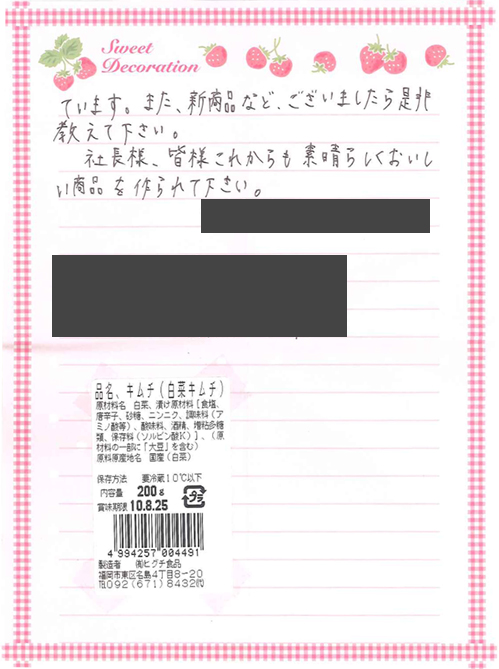 Sweet
Decoration
ています。また、新商品など、ございましたら是非
教えて下さい。
社長様、皆様これからも素晴らしくおいし
い商品を作られて下さい。
品名、キムチ(白菜キムチ)
原材料名 白菜、漬け原材料[食塩、
唐辛子、砂糖、ニンニク、調味料(ア
ミノ酸等)、酸味料、酒精、増粘多糖
類、保存料(ソルビン酸K)]、(原
材料の一部に「大豆」を含む)
原料原産地名 国産(白菜)
保存方法 要冷蔵10℃以下
内容量 200g
プラ
賞味期限 10.8.25
4 994257 004491
製造者 ㈲ヒグチ食品
福岡市東区名島4丁目8-20
℡092(671)8432㈹